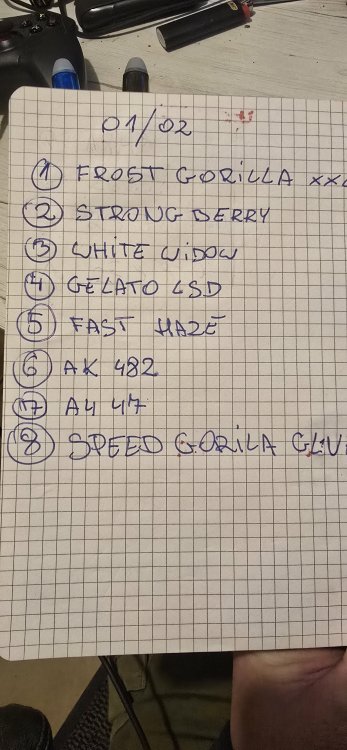 01/02
1 FROST GORILLA XXL
2 STRONG BERRY
3 WHITE WIDOW
4 GELATO LSD
5 FAST HAZE
6 AK 482
7 A4 47
8 SPEED GORILA GLU